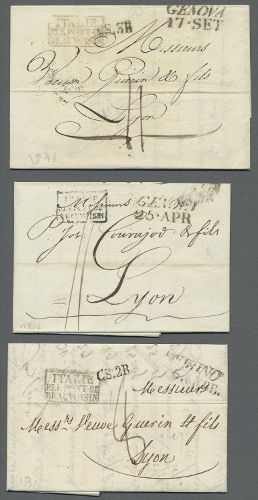 ITALIE
PAR PONT-DE
BEAUVOISIN
C.S.3R
GENOVA
17·SET
Messieurs
Guérin & fils
Lyon
ITALIE
BEAUVOISIN
Messieurs
GENOVA
25·APR
Jos Courajod & fils
Lyon
ITALIE
PAR PONT-DE
BEAUVOISIN
C.S.2R
TORINO
Messieurs
Mess.rs Veuve Guerin & fils
Lyon